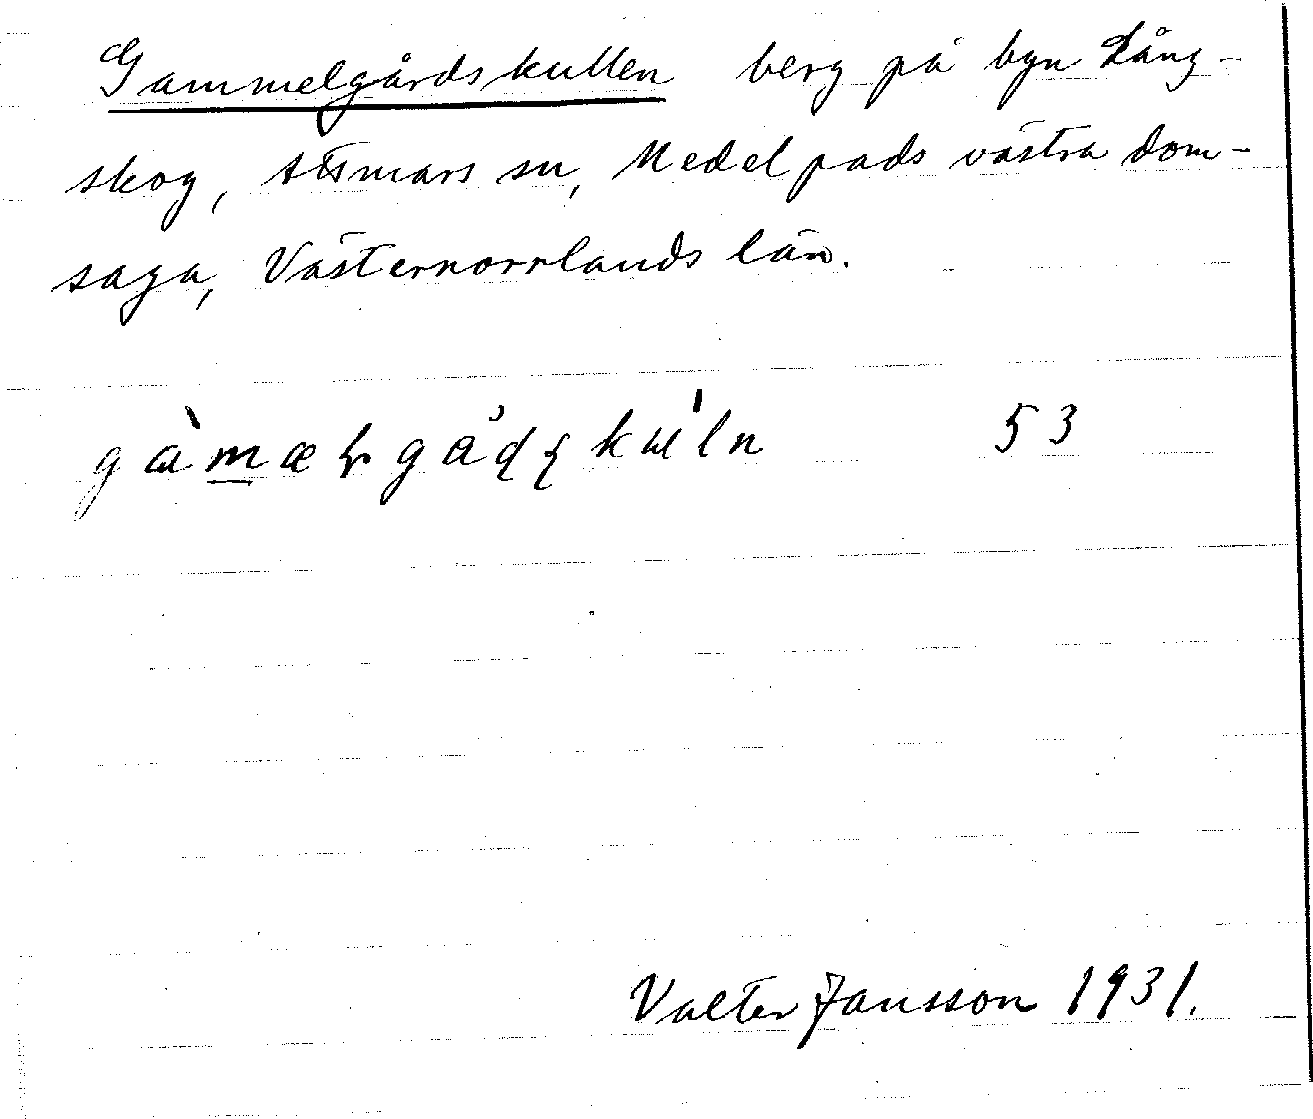 Gammelgårdskullen berg på byn Lång-
skog, Attmars sn, Medelpads västra dom-
saga, Västernorrlands län.
53
Valter Jansson 1931.